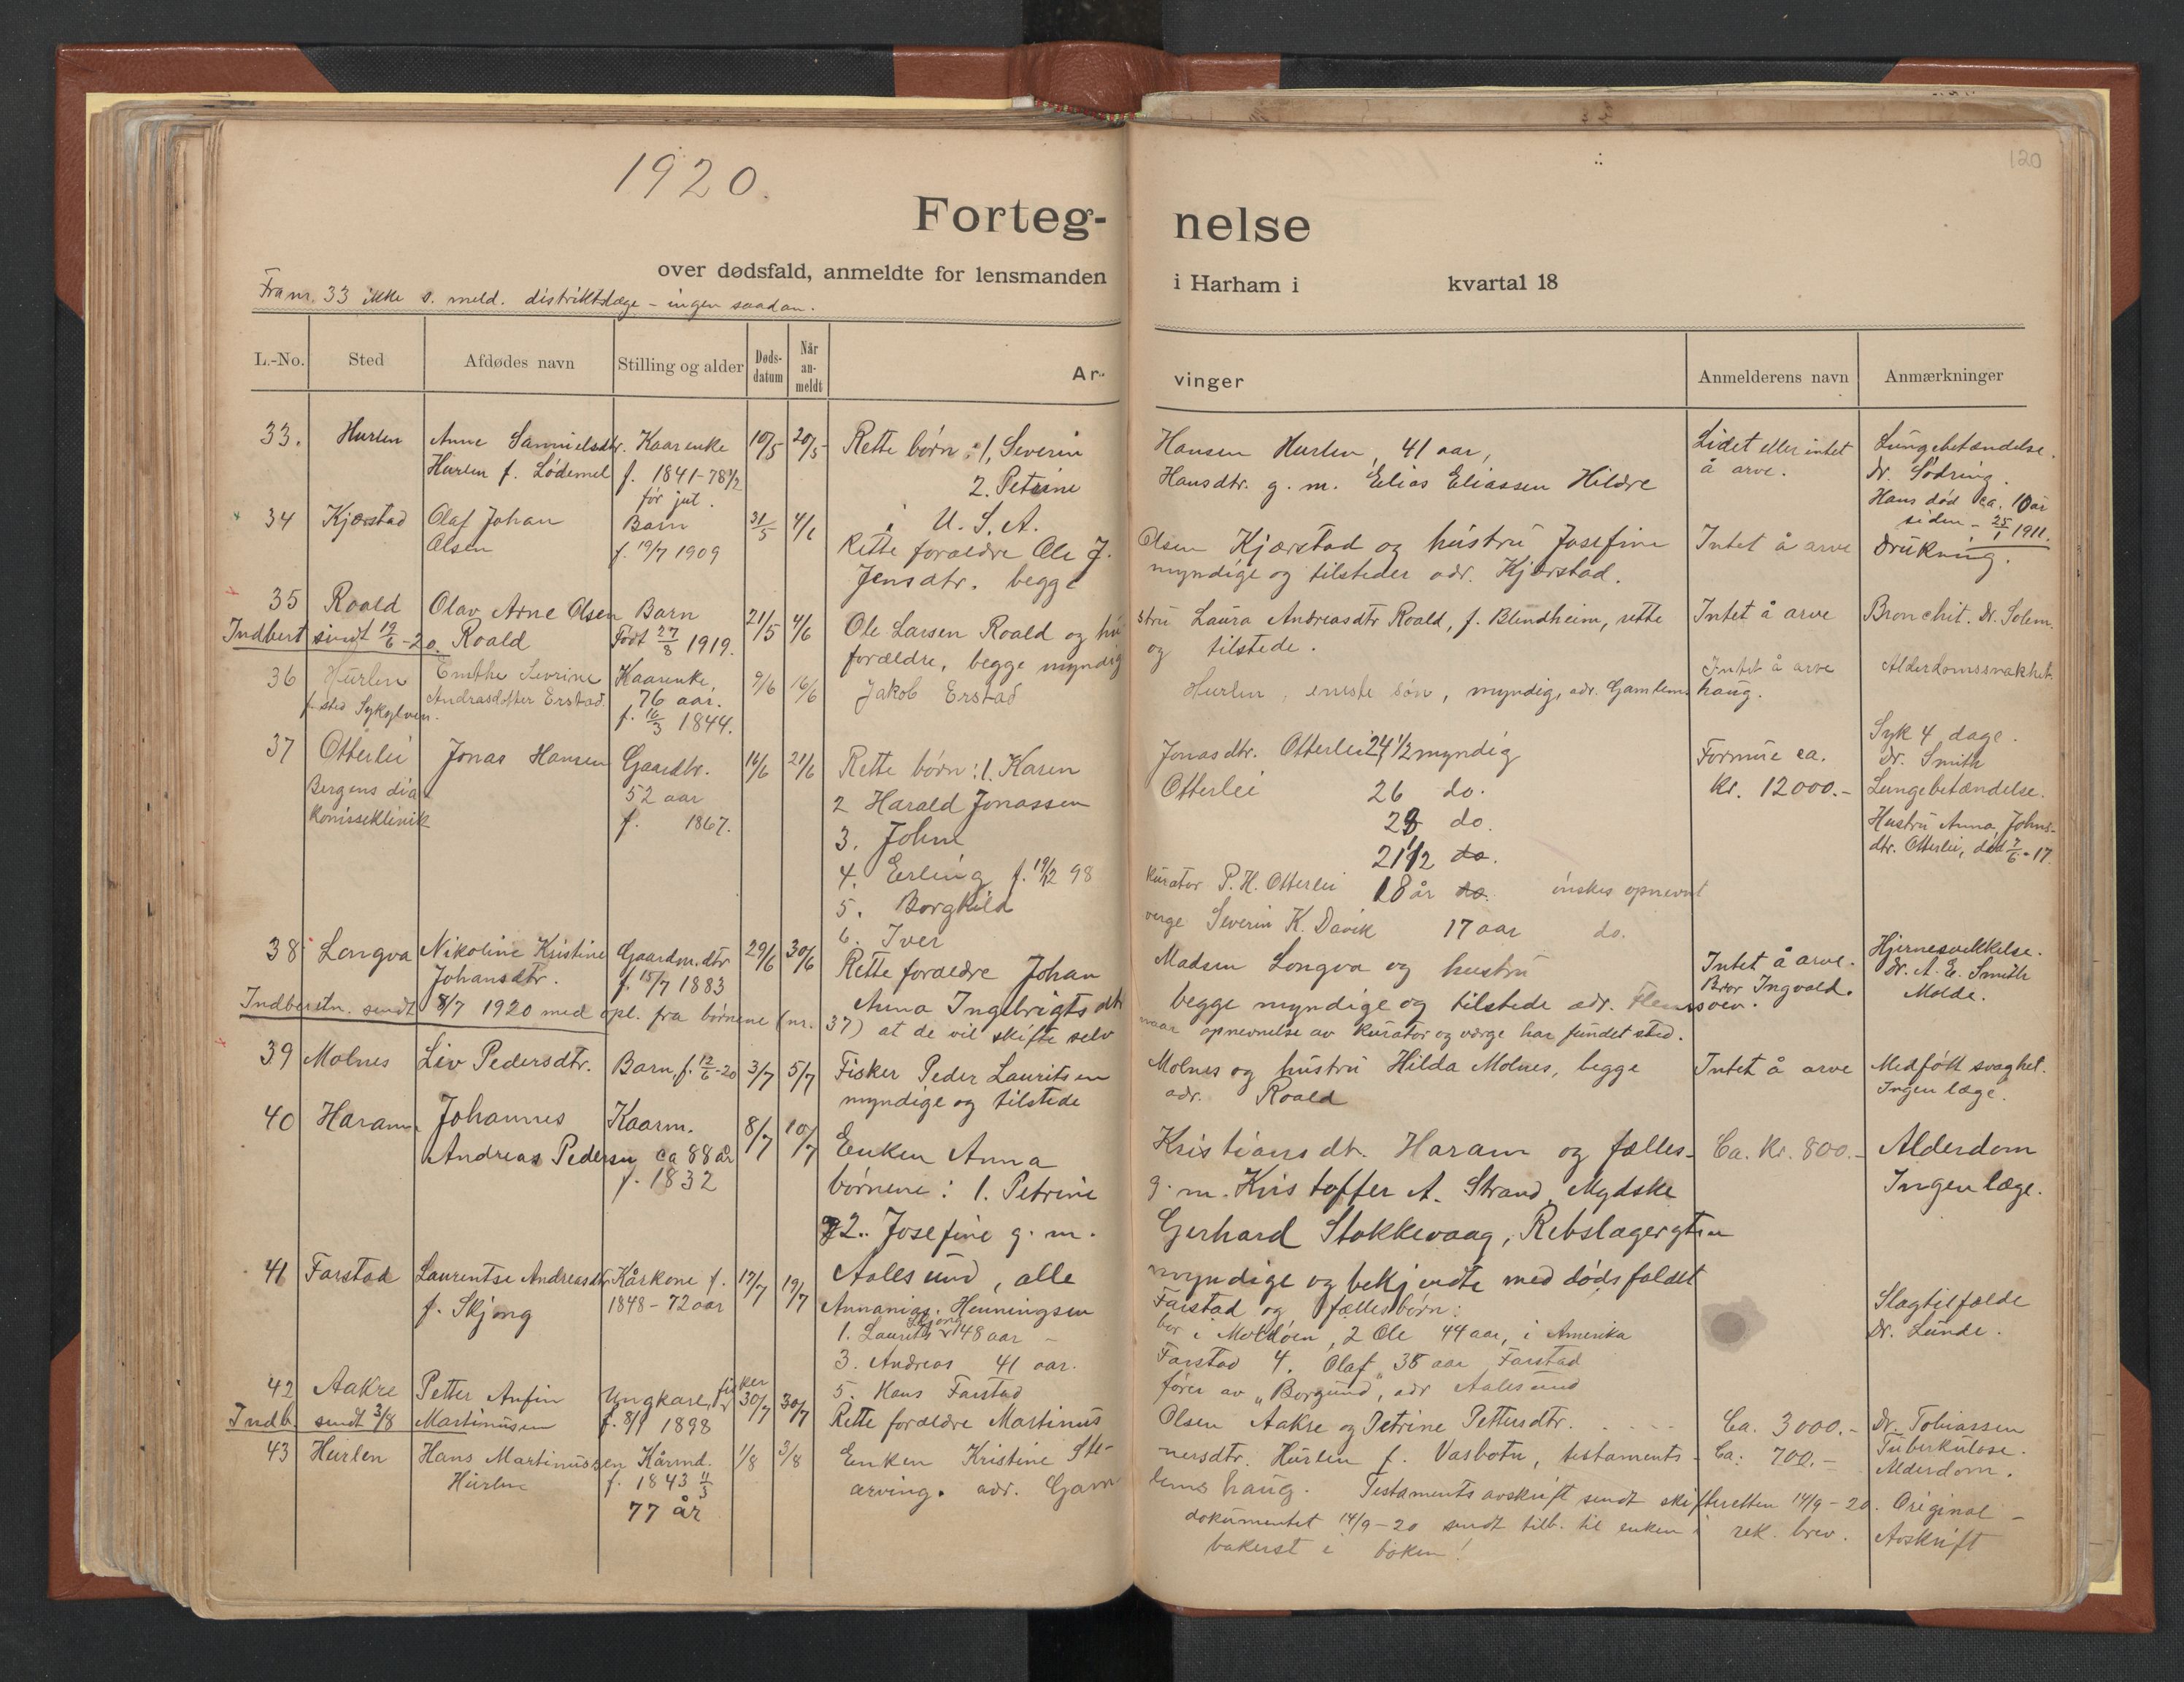 1920.
120
Forteg- nelse
over dødsfald, anmeldte for lensmanden i Harham i kvartal 18
Fra nr. 33 ikke s. meld. distriktslæge - ingen saadan.
L.-No. Sted Afdødes navn Stilling og alder Døds-datum Når an-meldt Ar- vinger Anmelderens navn Anmærkninger
33. Hurlen Anne Samuelsdtr. Kaarenke 10/5 20/5 Rette børn: 1, Severin Hansen Hurlen, 41 aar, Lidet eller intet Lungebetændelse.
Hurlen f. Lødemel f. 1841-78 1/2 2. Petrine Hansdtr. g. m. Elias Eliassen Hildre å arve. Dr. Sødring.
før jul. i U. S. A. Hans død ca. 10 år
siden - 25/1 1911.
34 Kjærstad Olaf Johan Barn 31/5 4/6 Rette foraeldre Ole J. Olsen Kjærstad og hustru Josefine Intet å arve Drukning.
Olsen f. 19/7 1909 Jensdtr. begge myndige og tilsteder adr. Kjærstad.
35 Roald Olav Arne Olsen Barn 21/5 4/6 Ole Larsen Roald og hustru Laura Andreasdtr Roald, f. Blindheim, rette Intet å arve Bronchit. Dr. Solem.
Indbert sendt 19/6-20. Roald Født 27/8 1919. forældre, begge myndig og tilstede.
36 Hurlen Severine Kaarenke, 9/6 16/6 Jakob Erstad Hurlen, eneste søn, myndig, adr. Gamlemshaug. Intet å arve Alderdomssvakhet
f. sted Sykylven. Andrasdotter Erstad. 76 aar.
f. 16/3 1844.
37 Otterlei Jonas Hansen Gaardbr. 16/6 21/6 Rette børn: 1. Karen Jonasdtr. Otterlei 24 1/2 myndig Formue ca. Syk 4 dage.
Bergens dia- 52 aar 2 Harald Jonassen Otterlei 26 do. Kr. 12000.- Dr. Smith
konisseklinik f. 1867. 3. John 28 do. Lungebetændelse.
4. Erling f. 19/12 98 21 1/2 do. Hustru Anna Johns-
5. Borghild kurator P. H. Otterlei 18 år do. ønskes opnevnt dtr. Otterlei, død 7/6-17.
6. Iver verge Severin K. Davik 17 aar do.
38 Longva Nikoline Kristine Gaardm. dtr 29/6 30/6 Rette foraeldre Johan Madsen Longva og hustru Intet å arve. Hjernesvekkelse.
Johansdtr. f. 15/7 1883 Anna Ingebrigtsdtr begge myndige og tilstede adr. Flemsøen. Bror Ingvald. Dr. A. E. Smith
Molde.
Indberetn. sendt 8/7 1920 med opl. fra børnene (nr. 37) at de vil skifte selv naar opnevnelse av kurator og værge har fundet sted.
39 Molnes Liv Pedersdtr. Barn, f. 12/6-20 3/7 5/7 Fisker Peder Lauritsen Molnes og hustru Hilda Molnes, begge Intet å arve Medfødt svaghet.
myndige og tilstede adr. Roald Ingen læge.
40 Haram Johannes Kaarm. 8/7 10/7 Enken Anna Kristiansdtr. Haram og fælles- Ca. Kr. 800.- Alderdom
Andreas Pedersen ca 88 år børnene: 1. Petrine g. m. Kristoffer A. Strand, Mydske Ingen læge.
f. 1832 2. Josefine g. m. Gerhard Stokkevaag, Rebslagergten
Aalesund, alle myndige og bekjendte med dødsfaldet
41 Farstad Laurentse Andreasdtr. Kårkone f. 17/7 19/7 Annanias Henningsen Farstad og fællesbørn: Slagtilfælde
f. Skjong 1848-72 aar 1. Laurits Skjong 48 aar - bor i Moldøen, 2 Ole 44 aar, i Amerika Dr. Lunde.
3. Andreas 41 aar. Farstad 4. Olaf 35 aar Farstad
5. Hans Farstad fører av "Borgund", adr Aalesund
42 Aakre Petter Anfin Ungkarl, fisker 30/7 30/7 Rette foraeldre Martinus Olsen Aakre og Petrine Pettersdtr. Ca. 3000.- Dr. Tobiassen
Indb. sendt 3/8 Martinussen f. 8/9 1898 Tuberkulose.
43 Hurlen Hans Martinussen Kårmd. 1/8 3/8 Enken Kristine Ste- nersdtr. Hurlen f. Vasbotn, testaments- Ca. 700.- Alderdom.
Hurlen f. 1843 11/3 arving. adr. Gam- lemshaug. Testamentsavskrift sendt skifteretten 14/9-20. Original-
77 år dokumentet 14/9-20 sendt tilb. til enken i rek. brev. Avskrift
bakerst i boken!